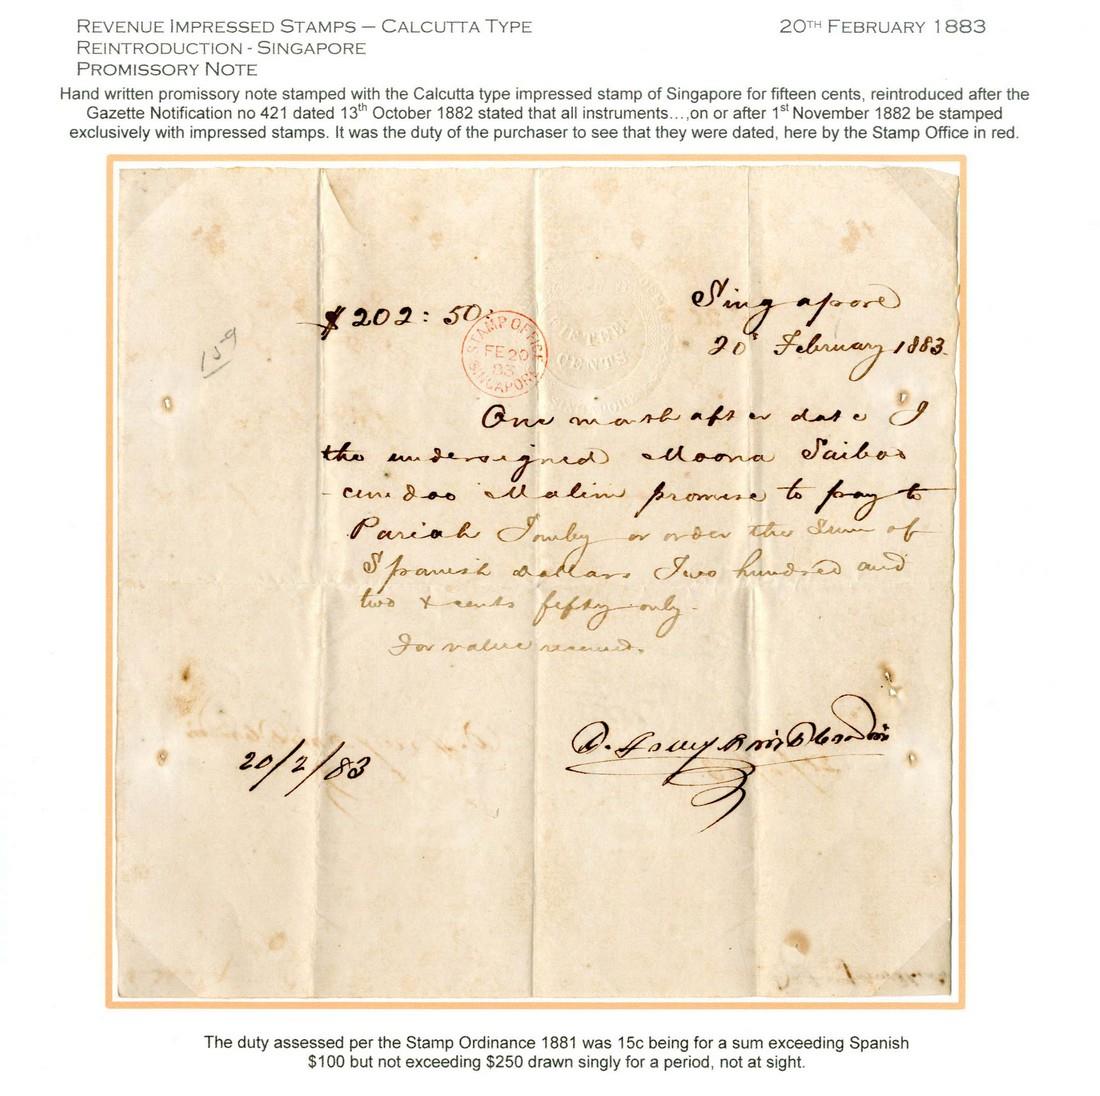 REVENUE IMPRESSED STAMPS – CALCUTTA TYPE
20TH FEBRUARY 1883
REINTRODUCTION - SINGAPORE
PROMISSORY NOTE
Hand written promissory note stamped with the Calcutta type impressed stamp of Singapore for fifteen cents, reintroduced after the
Gazette Notification no 421 dated 13th October 1882 stated that all instruments…,on or after 1st November 1882 be stamped
exclusively with impressed stamps. It was the duty of the purchaser to see that they were dated, here by the Stamp Office in red.
Singapore
$202:50.
STAMP OFFICE
FE 20
83
SINGAPORE
FIFTEEN
CENTS
SINGAPORE
20 February 1883.
159
One month after date I
the undersigned Moona Saiboo
Malim promise to pay to
Pariah or order the Sum of
Spanish dollars Two hundred and
two & cents fifty only.
For value received.
20/2/83
The duty assessed per the Stamp Ordinance 1881 was 15c being for a sum exceeding Spanish
$100 but not exceeding $250 drawn singly for a period, not at sight.